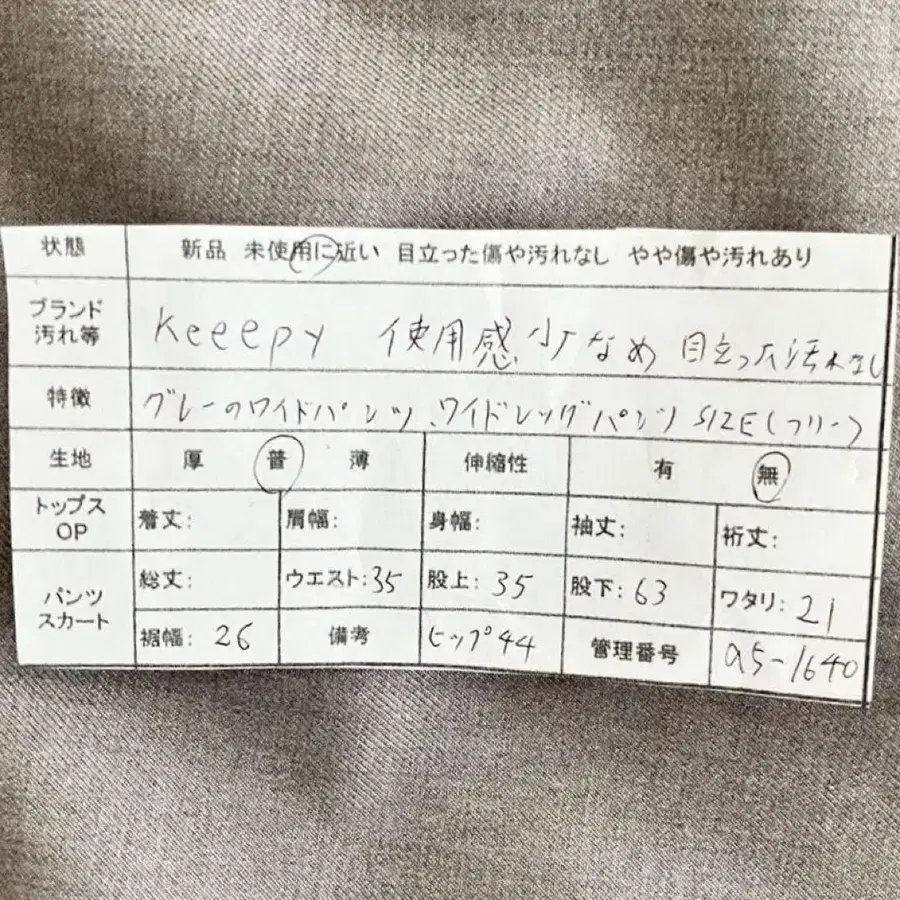 状態 新品 未使用に近い 目立った傷や汚れなし やや傷や汚れあり
ブランド
汚れ等 keeepy 使用感少なめ 目立った汚れなし
特徴 グレーのワイドパンツ、ワイドレッグパンツ SIZE(フリー)
生地 厚 普 薄 伸縮性 有 無
トップス
OP 着丈: 肩幅: 身幅: 袖丈: 裄丈:
パンツ
スカート 総丈: ウエスト:35 股上:35 股下:63 ワタリ:21
裾幅:26 備考 ヒップ44 管理番号 a5-1640